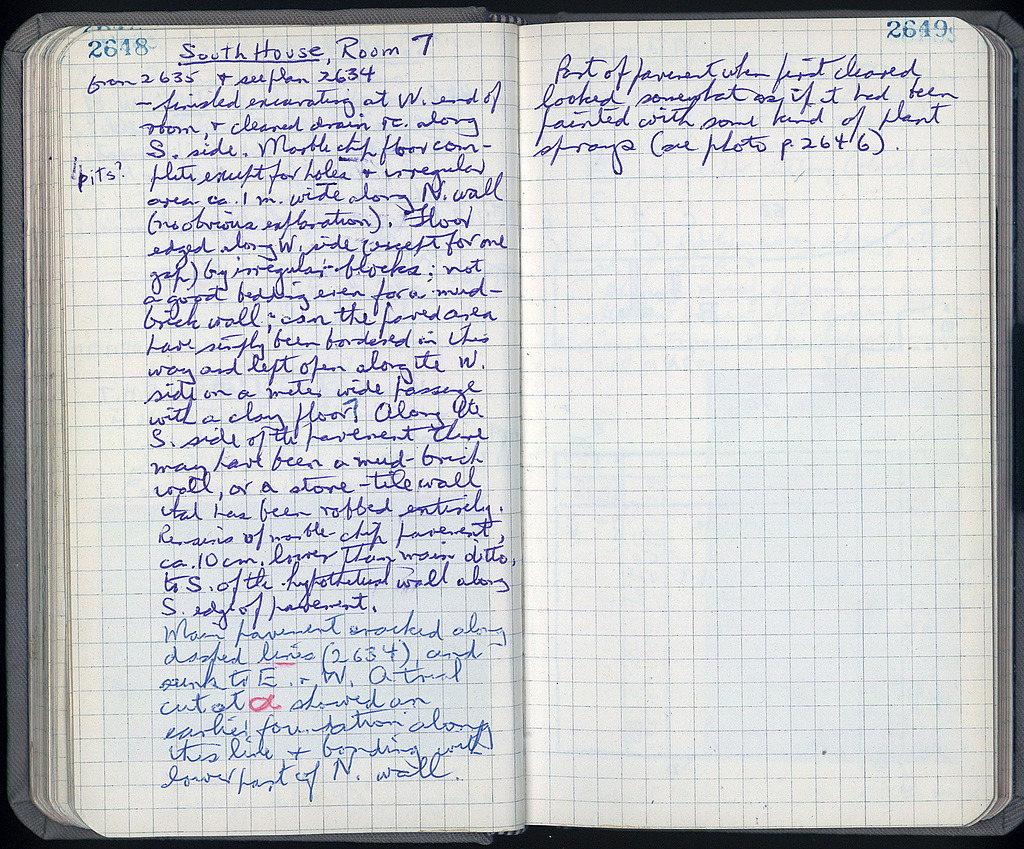 2648
South House, Room 7
from 2635 & see plan 2634
– finished excavating at W. end of
room, & cleaned drain etc. along
S. side. Marble chip floor com-
pits?
plete except for holes & irregular
area ca. 1 m. wide along N. wall
(no obvious explanation). Floor
edged along W. side (except for one
gap) by irregular blocks; not
a good bedding even for a mud-
brick wall; can the paved area
have simply been bordered in this
way and left open along the W.
side on a meter wide passage
with a clay floor? Along the
S. side of the pavement there
may have been a mud-brick
wall, or a stone-tile wall
that has been robbed entirely.
Remains of marble chip pavement,
ca. 10 cm. lower than main ditto,
to S. of the hypothetical wall along
S. edge of pavement.
Main pavement cracked along
dashed lines (2634) and
sunk to E. & W. A trial
cut at α showed an
earlier foundation along
this line & bonding with
lower part of N. wall.
2649
Part of pavement when first cleared
looked somewhat as if it had been
painted with some kind of plant
sprays (see photo p. 2646).